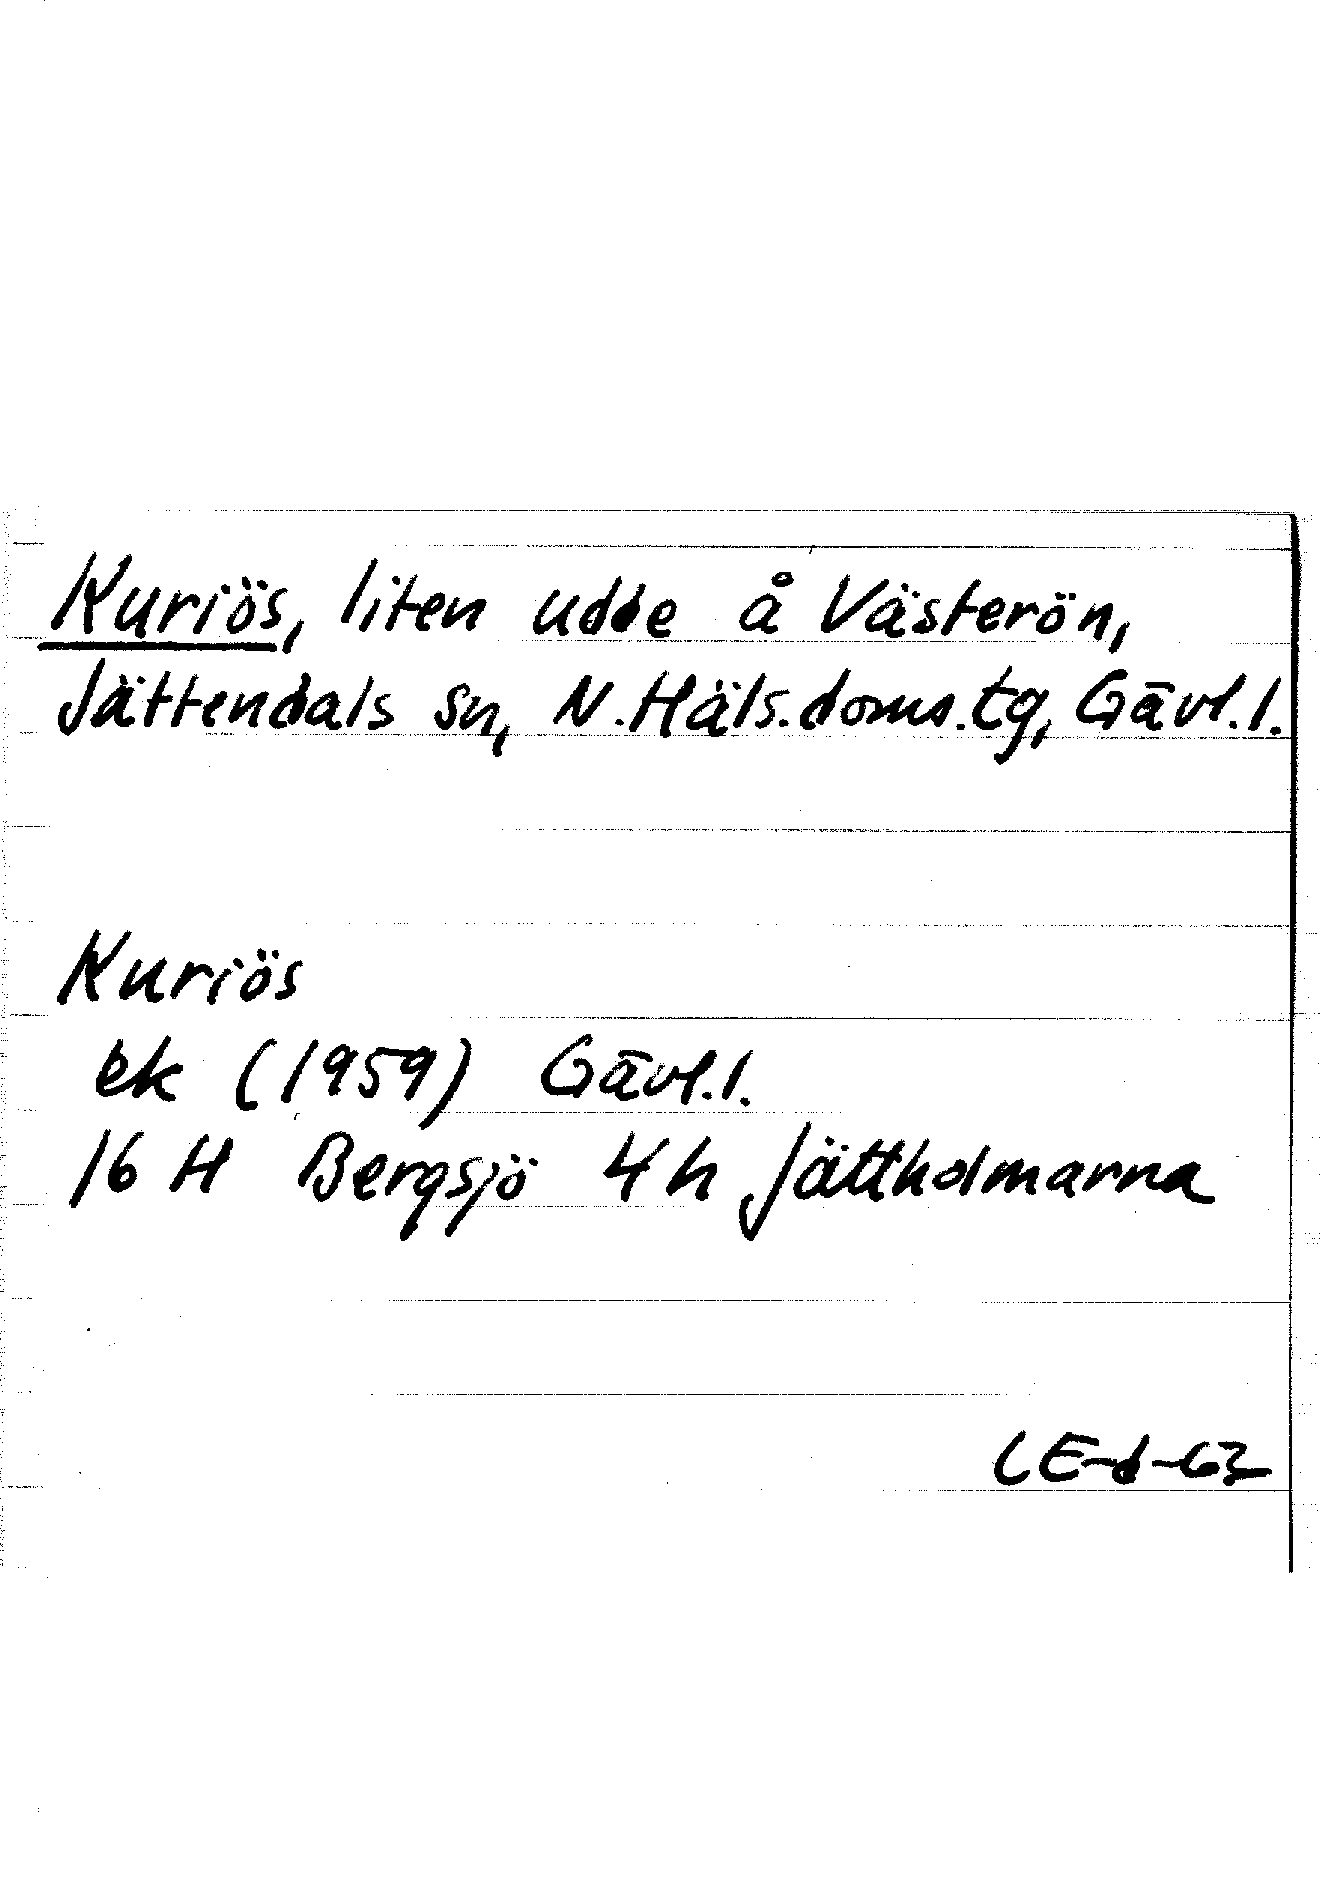 Kuriös, liten udde å Västerön,
Jättendals sn, N.Häls.doms.tg, Gävl.l.
Kuriös
ek (1959) Gävl.l.
16 H Bergsjö 4h Jättholmarna
CE-d-63